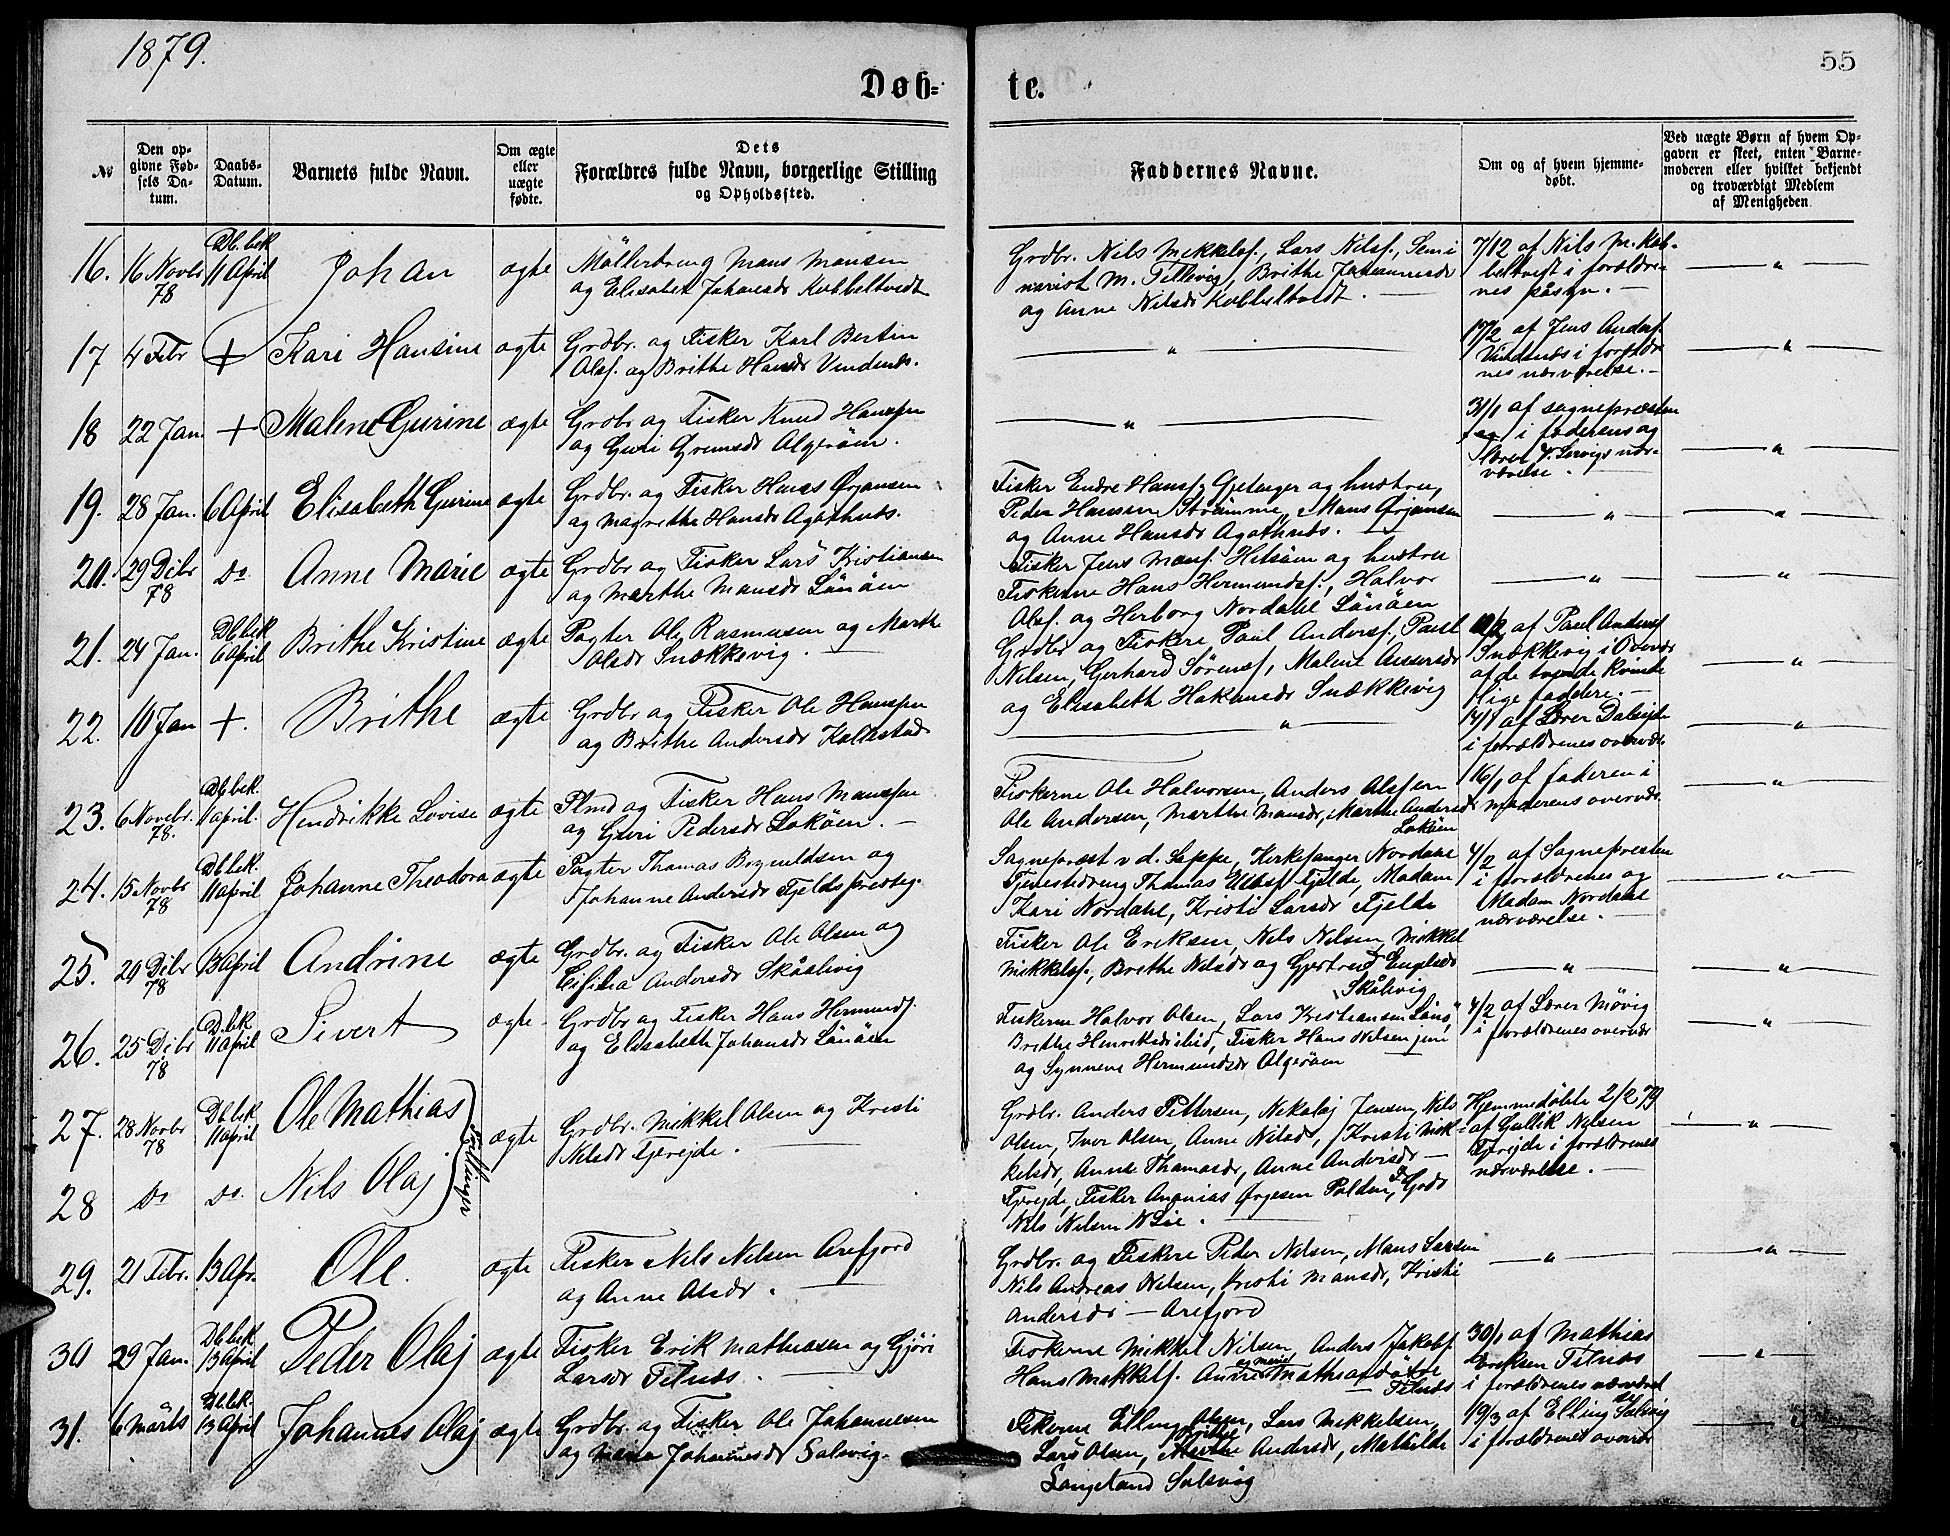 1879.
55
Døb=
te.
№
Den op-
givne Fød-
sels Da-
tum.
Daabs-
Datum.
Barnets fulde Navn.
Om ægte
eller
uægte
fødte.
Dets
Forældres fulde Navn, borgerlige Stilling
og Opholdssted.
Faddernes Navne.
Om og af hvem hjemme-
døbt.
Ved uægte Børn af hvem Op-
gaven er skeet, enten Barne-
moderen eller hvilket bekjendt
og troværdigt Medlem
af Menigheden
16. 16 Novbr 78 Db. bek 11 April Johan ægte
Möllerdreng Mans Mansen
og Elisabet Johansdr Kobbeltvedt
Grdbr. Nils Mikkelsf., Lars Nilsf., Semi
narist M. Tellevig, Brithe Johannesdr
og Anne Nilsdr Kobbeltvedt.
7/12 af Nils M. Kob-
beltveit i forældre-
nes påsyn.
17 4 Febr + Kari Hansine ægte
Grdbr. og Fisker Karl Bertin
Olsf. og Brithe Hansdr Vindenes.
17/2 af Jens Andersf.
Vindenæs i forældre
nes nærværelse.
18 22 Jan. + Malene Gurine ægte
Grdbr og Fisker Knud Hanssen
og Guri Gremsdr Algeröen.
31/1 af sognepræsten
i faderens og
Lærer Servigs nær-
værelse.
19. 28 Jan. 6 April Elisabeth Gurine ægte
Grdbr. og Fisker Hans Ørjansen
og Magrethe Hansdr Agathnæs.
Fisker Endre Hansf. Gjetanger og hustru,
Peder Hansen Strömme, Mans Ørjansen
og Anne Hansdr Agathnæs.
20. 29 Dcbr 78 Do. Anne Marie ægte
Grdbr og Fisker Lars Kristiansen
og Marthe Mansdr Lönöen
Fisker Jens Mansf. Hilsöen og hustru
Fiskerne Hans Hermundsf., Halvor
Olsf. og Herborg Nordahl Lönöen
21. 24 Jan. Db bek 6 April Brithe Kristine ægte
Pagter Ole Rasmusen og Marthe
Olsdr Snækkevig.
Grdbr og Fiskere Paul Andersf., Paul
Nilsen, Gerhard Sörensf., Malene Ansersdr
og Elisabeth Hakonsdr Snækkevig
af Paul Andersf
Snækkevig i Overvær
af de tvende kvinde
lige faddere.
22. 10 Jan +. Brithe ægte
Grdbr og Fisker Ole Hanssen
og Brithe Andersdr Kallestad
14/1 af Lærer Dalseide
i forældrenes overvær.
23. 6 Novebr. 78. Db. bek. 11 april. Hendrikke Lovise ægte
Plmd og Fisker Hans Manssen
og Guri Pedersdr Loköen.
Fiskerne Ole Halvorsen, Anders Olssen
Ole Andersen, Marthe Mansdr, Marthe Andersdr
Loköen
16/1 af faderen i
moderens overvær.
24. 15 Novbr 78 Db. bek. 11 april Johanne Theodora ægte
Pagter Thomas Bogneldsen og
Johanne Andersdr Fjelds prestegj.
Sognepræst v d. Lippe, Kirkesanger Nordahl
Tjenestedreng Thomas Fjelde, Madam
Kari Nordahl, Kristi Larsdr Fjelde
4/2 af Sognepresten
i forældrenes og
Madam Nordahl
nærværelse.
25. 20 Dcbr 78 13 April Andrine ægte
Grdbr. og Fisker Ole Olsen og
Andersdr Skålevig
Fisker Ole Eriksen, Nils Nilsen, Mikkel
Mikkelsf., Brethe Nilsdr og Gjertrud Engelsdr
Skålevig
26. 25 Dcbr 78 D. bek 11 April Sivert ægte
Grdbr og Fisker Hans Hermundsf.
og Elisabeth Johansdr Lönöen
Fiskerne Halvor Olsen, Lars Kristiansen Lönö,
Brithe Henriksdr ibid, Fisker Hans Nilsen jun:
og Synneve Hermundsdr Algeröen
4/2 af Lærer Mövig
i forældrenes overvær
27. 28 Novbr 78 Db bek 11 April Ole Mathias ægte
Tvillinger
Grdbr. Mikkel Olsen og Kristi
Nilsdr Fjereide.
Grdbr. Anders Pettersen, Nikolaj Jensen, Nils
Olsen, Iver Olsen, Anne Nilsd, Kristi Mik-
kelsdr, Anne Thomasdr, Anne Andersdr
Fjereide, Fisker Ananias Ørgesen Polden,
Nils Nilsen N Lie.
Hjemmedöbte 2/2 79
af Gullik Nilsen
Fjereide i forældrenes
nærværelse.
28 Do Do. Nils Olaj
29. 21 Febr. 13 Apr. Ole. ægte
Fisker Nils Nilsen Arefjord
og Anne Olsdr.
Grdbr. og Fiskere Peder Nilsen, Mans Larsen
Nils Andreas Nilsen, Kristi Mansdr, Kristi
Andersdr — Arefjord
30 29 Jan. Db bek 13 April Peder Olaj ægte
Fisker Erik Mathiasen og Gjöri
Larsdr Tilnæs.
Fiskerne Mikkel Nilsen, Anders Jakobsf.
Hans Mikkelsf. Anne og Marie Mathiasdöttre
Tilnæs
30/1 af Mathias
Eriksen Tilnæs
i forældrenes nærværel
31. 6 Märts Db. bek. 13 April Johannes Olaj ægte
Grdbr. og Fisker Ole Johannesen
og Maria Johannesdr Solsvig.
Fiskerne Elling Olsen, Lars Mikkelsen,
Lars Olsen, Brithe Andersdr, Mathilde
Langeland Solsvig
19/3 af Elling Solsvig
i forældrenes overvær